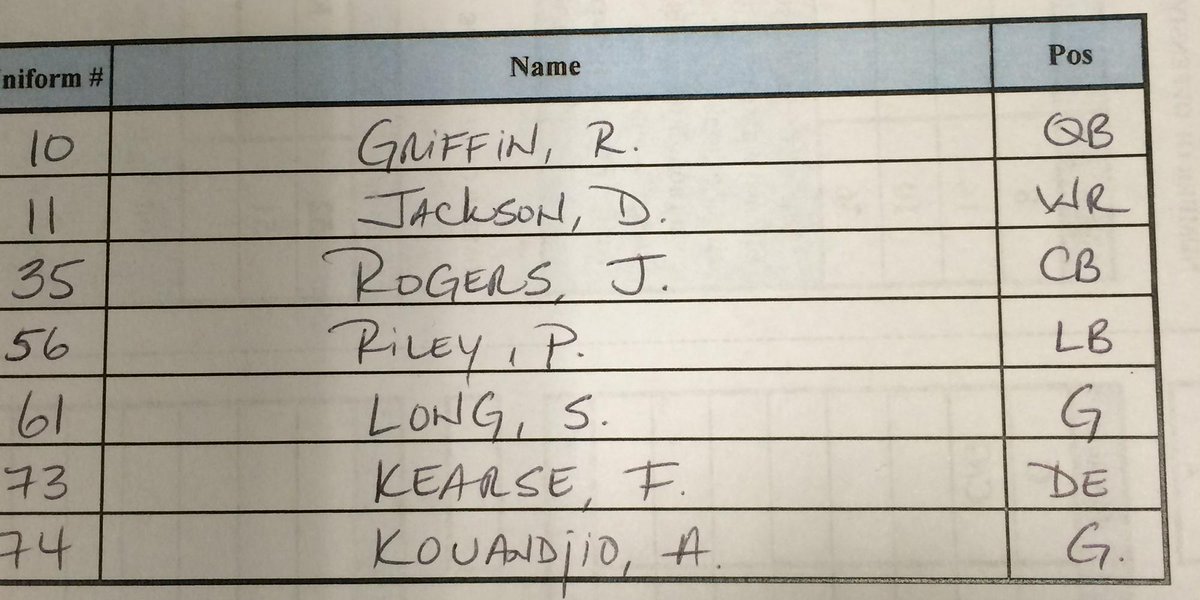 niform # Name Pos
10 GRiFFiN, R. QB
11 JACKSON, D. WR
35 ROGERS, J. CB
56 RiLEY, P. LB
61 LONG, S. G
73 KEARSE, F. DE
74 KOUANDjiO, A. G.